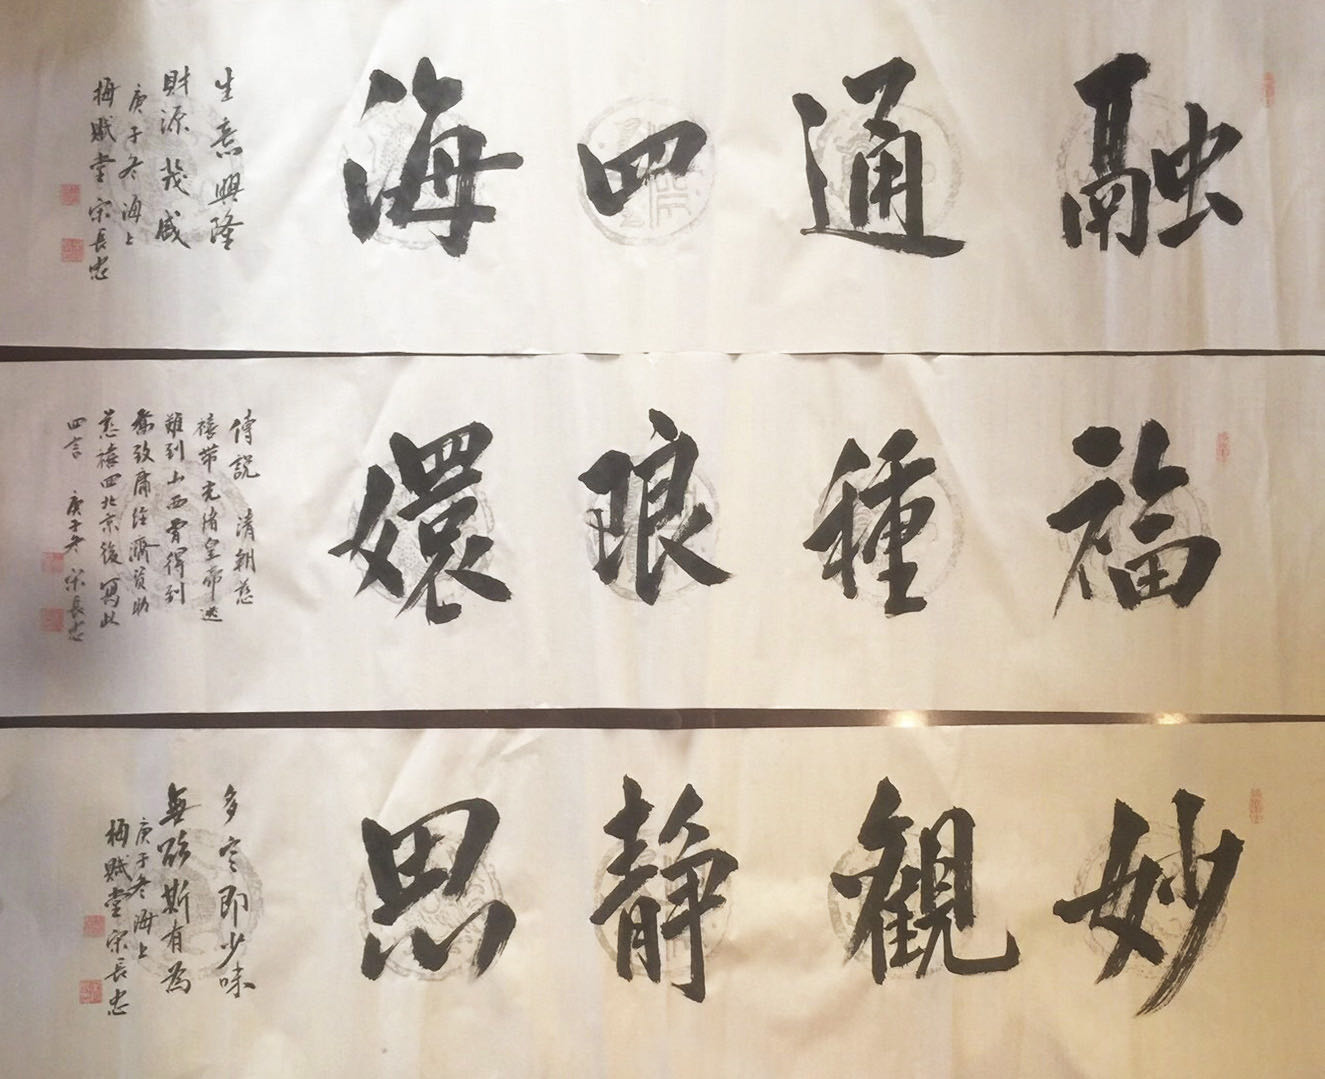 融通四海
生意興隆
財源茂盛
庚子冬海上
梅賦堂宗長忠
福種琅嬛
傳說清朝慈
禧帶光緒皇帝逃
難到山西曾得到
喬致庸經濟資助
慈禧回北京後寫此
四言 庚子冬 宗長忠
妙觀靜思
多言即少味
無欲斯有為
庚子冬海上
梅賦堂宗長忠